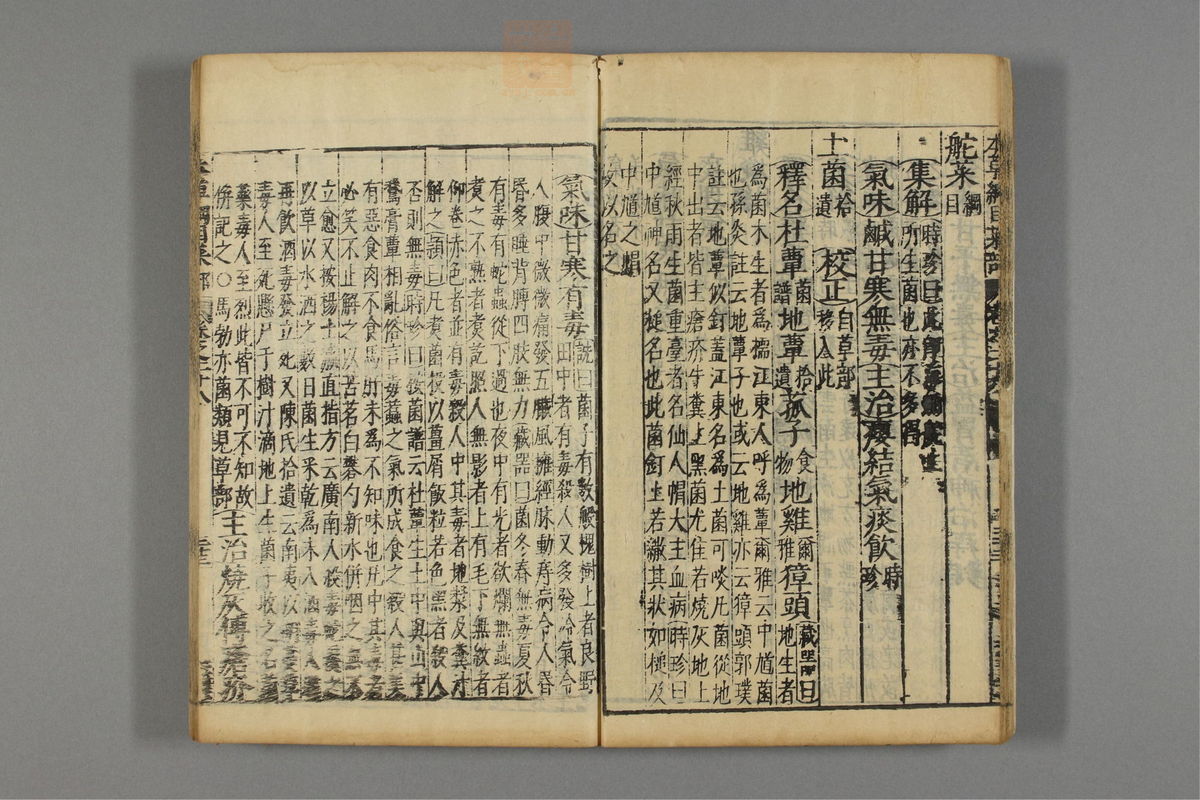 本草綱目菜部
舵菜綱目
集解時珍曰此即
所生菌也亦不多得
氣味鹹甘寒無毒主治癭結氣痰飲時珍
土菌拾遺校正自草部移入此
釋名杜蕈菌譜地蕈拾遺菰子食物地雞爾雅獐頭藏器曰地生者
為菌木生者為檽江東人呼為蕈爾雅云中馗菌
也孫炎註云地蕈子也或云地雞亦云獐頭郭璞
註云地蕈似釘蓋江東名為土菌可啖凡菌從地
中出者皆主瘡疥牛糞上黑菌尤佳若燒灰地上
經秋雨生菌重臺者名仙人帽大主血病時珍曰
中馗神名又槌名也此菌釘上若繖其狀如槌及
中馗之帽
故以名之
氣味甘寒有毒詵曰菌子有數般槐樹上者良野
田中者有毒殺人又多發冷氣令
人腹中微微痛發五臟風擁經脉動痔病令人昏
昏多睡背膊四肢無力藏器曰菌冬春無毒夏秋
有毒有蛇蟲從下過也夜中有光者欲爛無蟲者
煮之不熟者煮訖照人無影者上有毛下無紋者
仰卷赤色者並有毒殺人中其毒者地漿及糞汁
解之頌曰凡煮菌投以薑屑飯粒若色黑者殺人
否則無毒時珍曰菌譜云杜蕈生土中與山中
鵝膏蕈相亂俗言毒蟲之氣所成食之殺人
有惡食肉不食馬肝未為不知味也凡中其
必笑不止解之以苦茗白礬勺新水併咽之無不
立愈又按楊士瀛直指方云廣南人殺毒
以草以水洒之數日菌生采乾為末入酒毒人
再飲酒毒發立死又陳氏拾遺云南夷以
毒人至死懸尸于樹汁滴地上生菌子收之名菌
藥毒人至烈此皆不可不知故
併記之○馬勃亦菌類見草部主治燒灰傅瘡疥